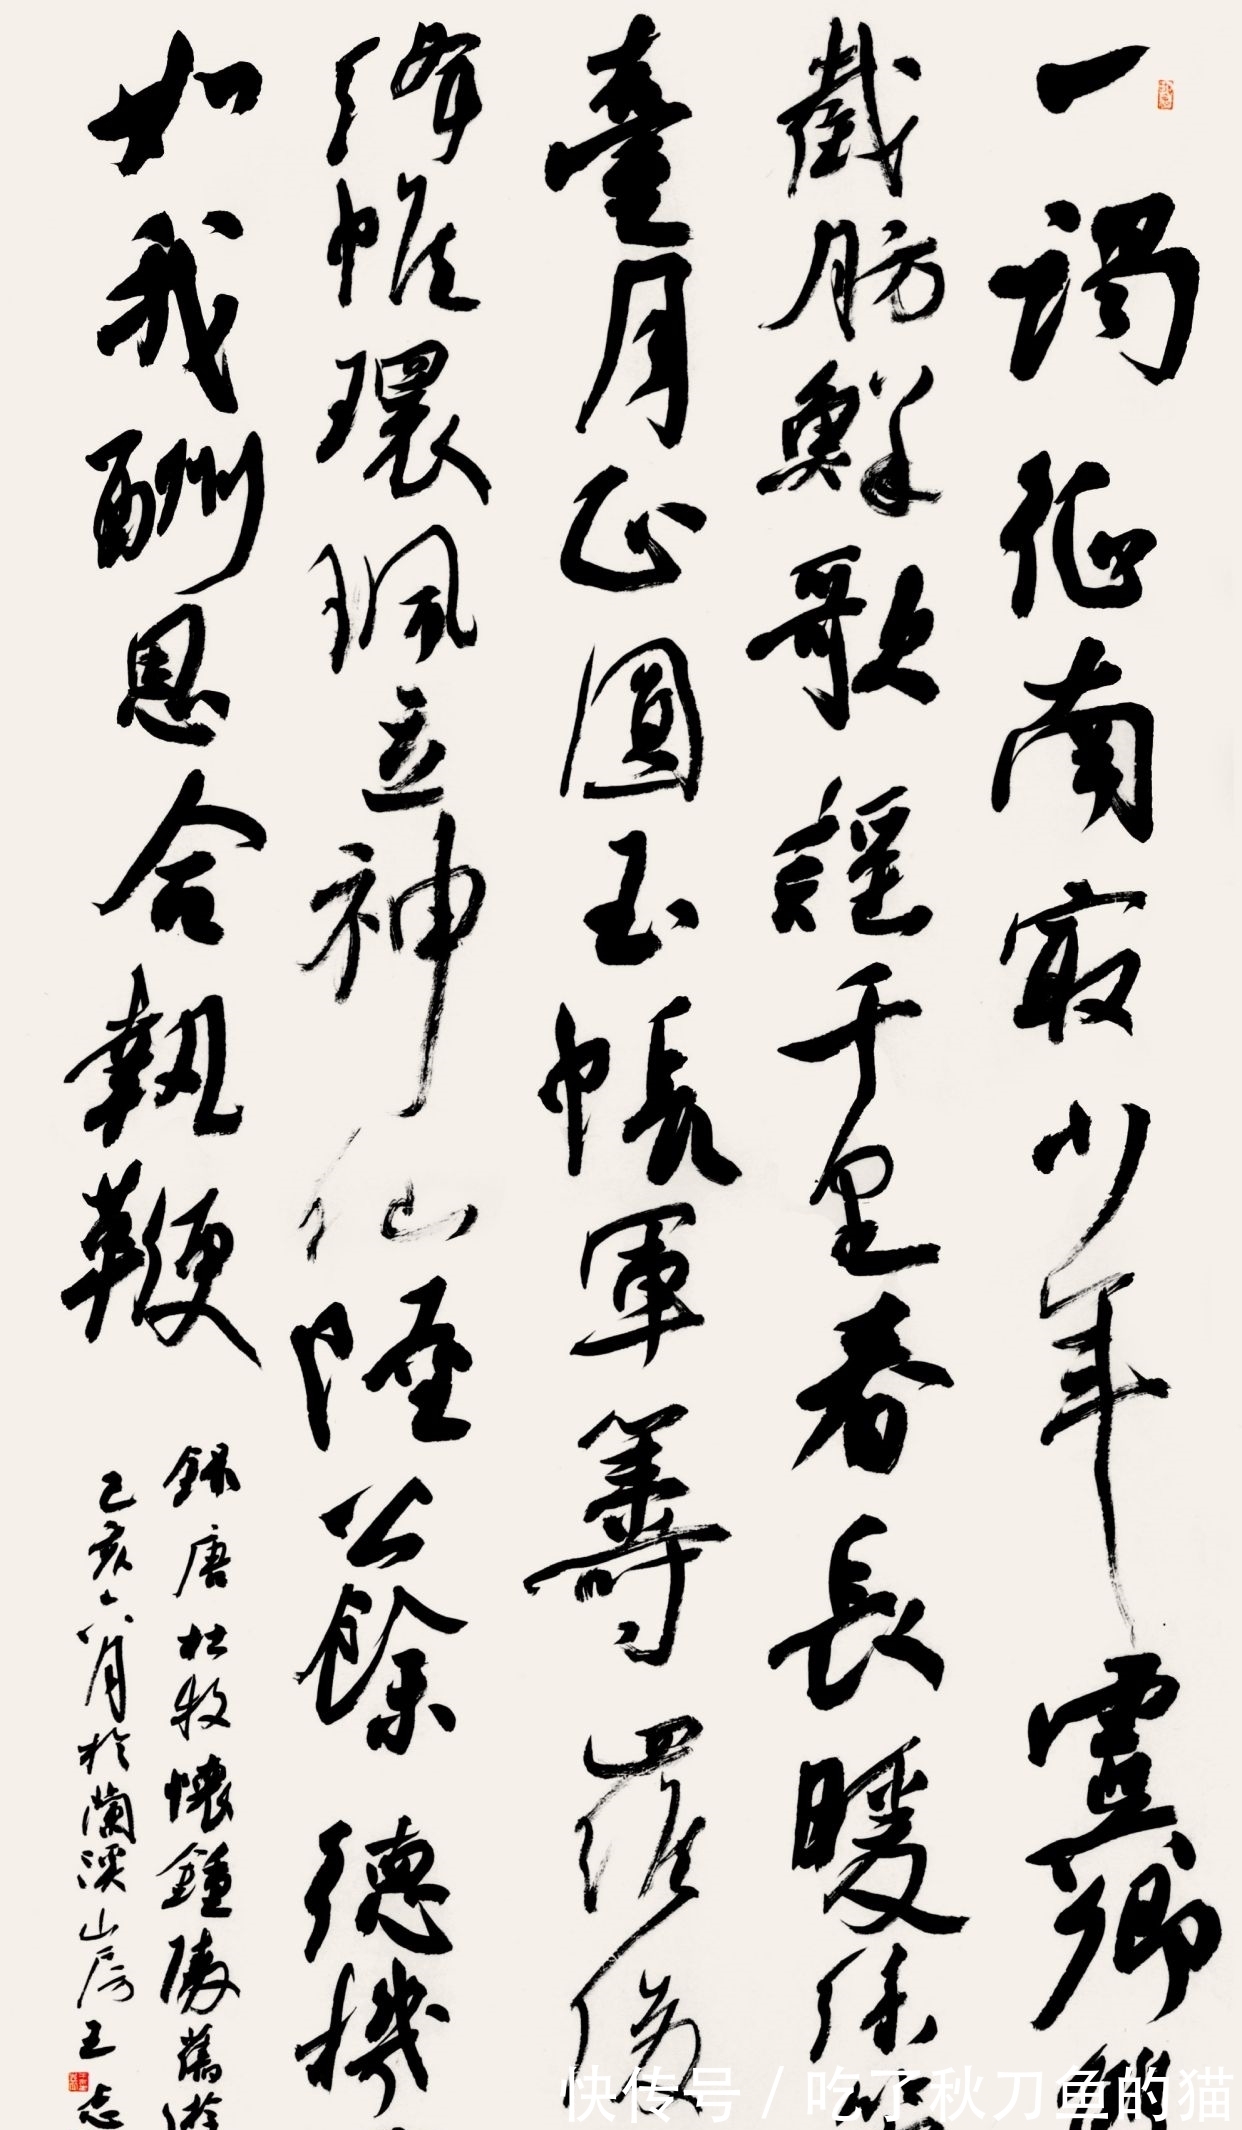 一謁征南冣少年虞卿
截肪鮮歌謠千里春長暖絲
臺月正圓玉帳軍籌羅俊
絳帷環珮立神仙陸公餘德機
如我酬恩合執鞭
錄唐杜牧懷鍾陵舊遊
己亥六月於蘭溪山房王志
快传号/吃了秋刀鱼的猫